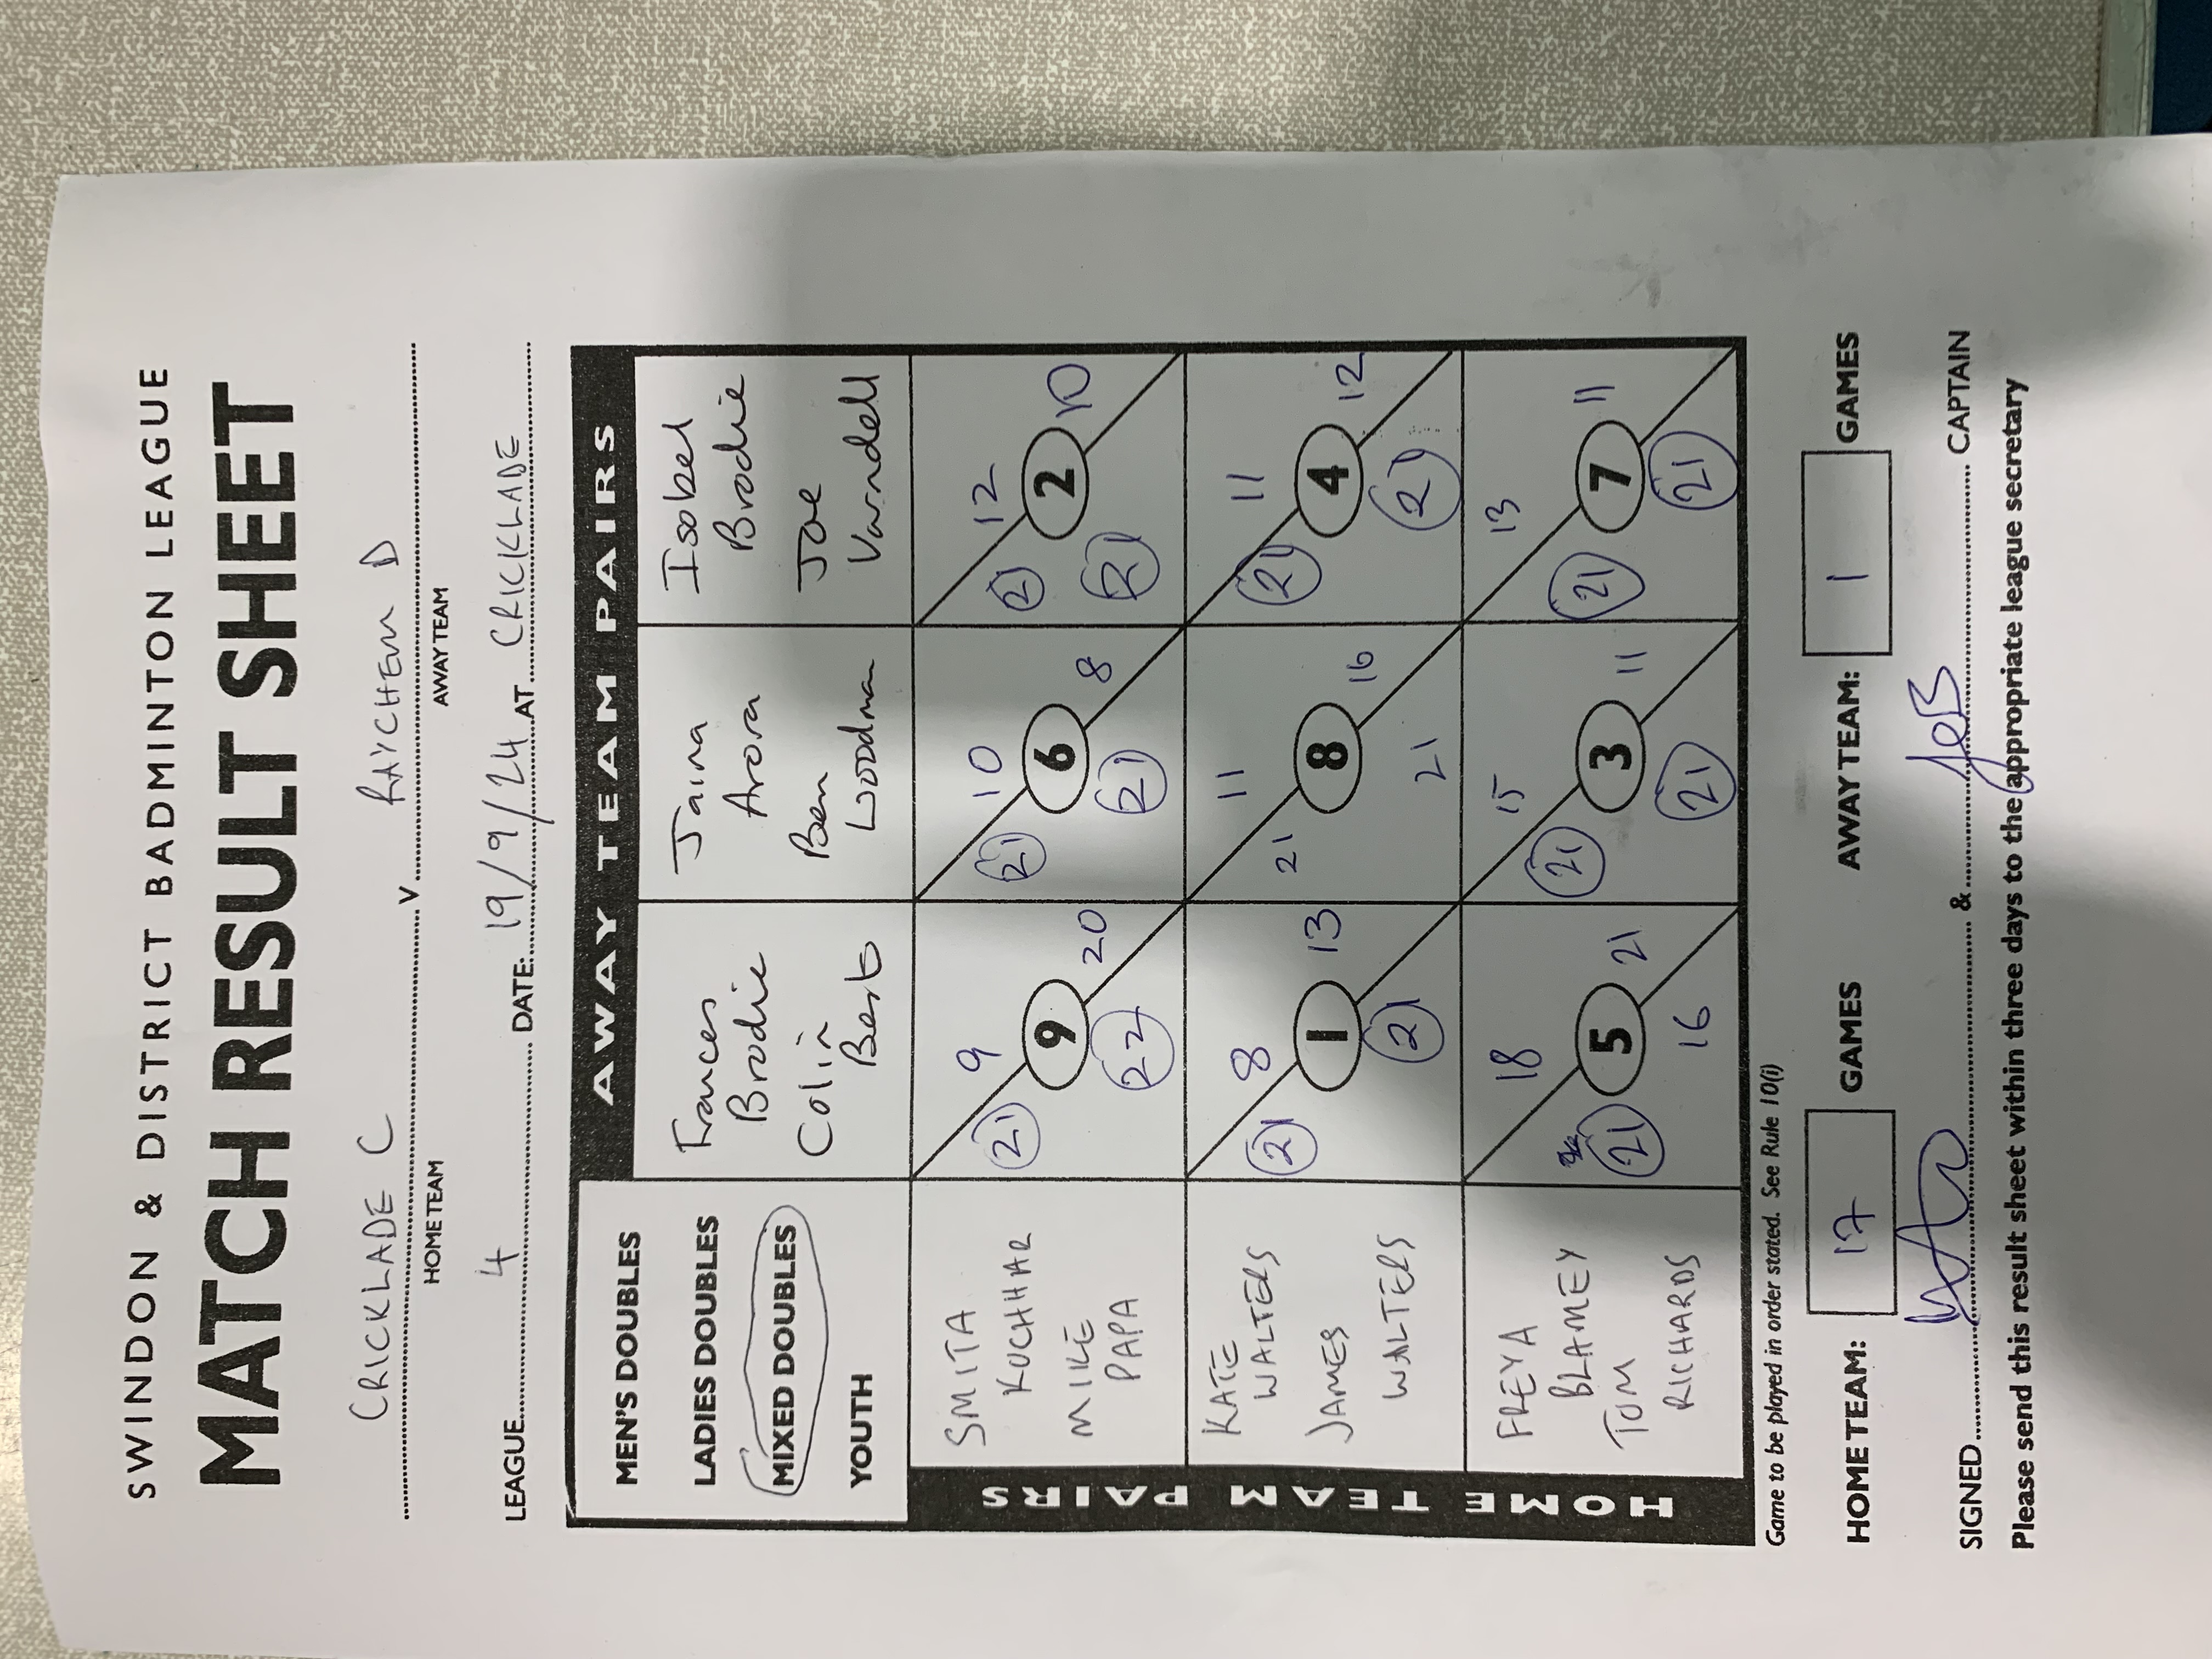 SWINDON & DISTRICT BADMINTON LEAGUE
MATCH RESULT SHEET
CRICKLADE C V RAYCHEM D
HOME TEAM AWAY TEAM
LEAGUE 4 DATE: 19/9/24 AT CRICKLADE
MEN'S DOUBLES
LADIES DOUBLES
MIXED DOUBLES
YOUTH
AWAY TEAM PAIRS
Frances
Brodie
Colin
Best
Jaina
Arora
Ben
Woodman
Isobel
Brodie
Joe
Varndell
HOME TEAM PAIRS
SMITA
KUCHHAR
MIKE
PAPA
21 9
9
22 20
21 10
6
21 8
21 12
2
21 10
KATE
WALTERS
JAMES
WALTERS
21 8
1
21 13
21 11
8
21 16
21 11
4
21 12
FREYA
BLAMEY
TOM
RICHARDS
21 18
5
16 21
21 15
3
21 11
21 13
7
21 11
Game to be played in order stated. See Rule 10(i)
HOME TEAM: 17 GAMES AWAY TEAM: 1 GAMES
SIGNED & CAPTAIN
Please send this result sheet within three days to the appropriate league secretary